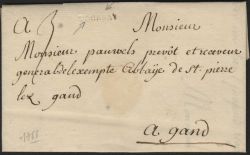 A
Monsieur
Monsieur pauwels prevôt et receveur
general de l'exempte Abbaÿe de st. pierre
lez gand
a gand